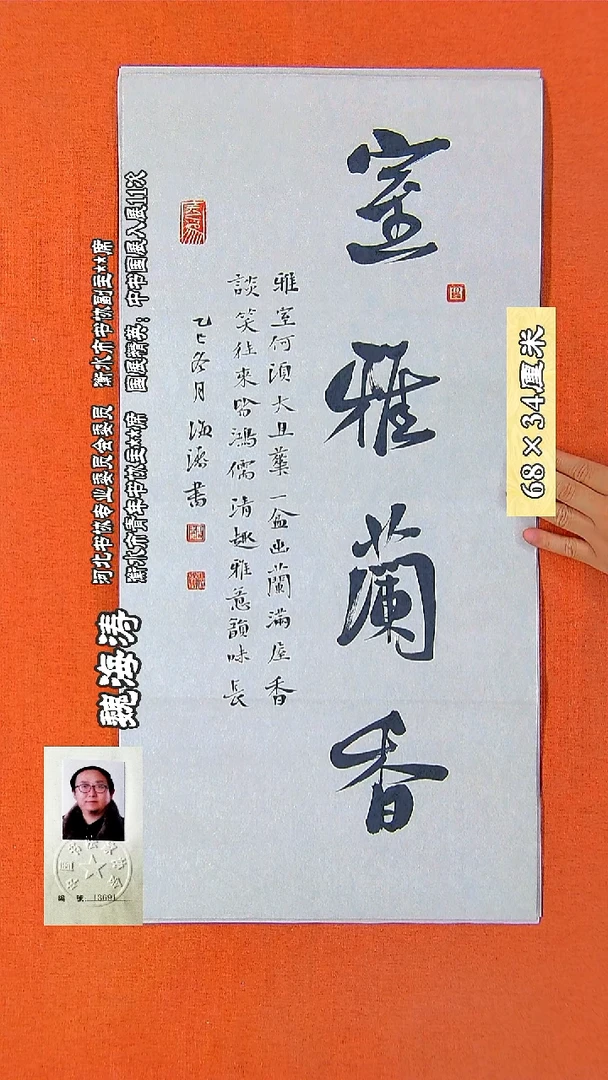 室雅蘭香
雅室何須大且華一盆幽蘭滿屋香
談笑往來皆鴻儒清趣雅意韻味長
乙巳冬月海濤書
68×34厘米
河北书协专业委员会委员 衡水市书协副主**席
衡水市青年书协主**席 国展精英：中书国展入展11次
魏海涛
編號 13691